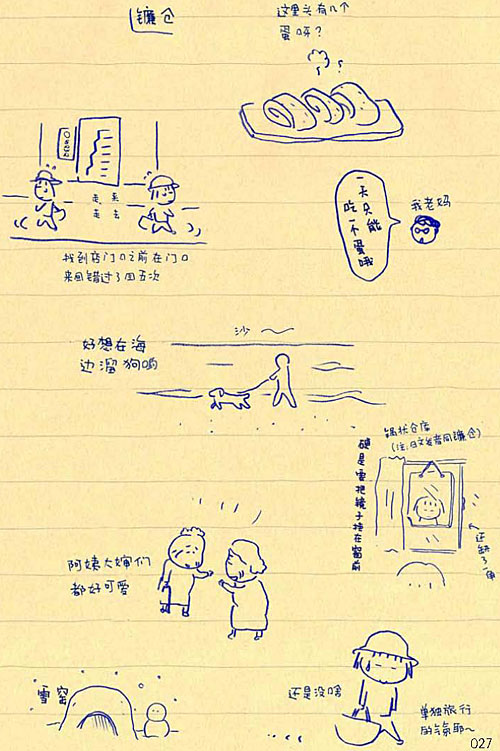 镰仓
这里头有几个
蛋呀?
走来
走去
找到店门口之前在门口
来回错过了四五次
一天只能
吃一个蛋哦
我老妈
沙~
好想在海
边溜狗哟
锅状仓库
(注:日文发音同镰仓)
硬是要把镜子挂在窗前
还缺了一角
阿姨大婶们
都好可爱
雪窑
还是没啥
单独旅行
的气氛耶~
027